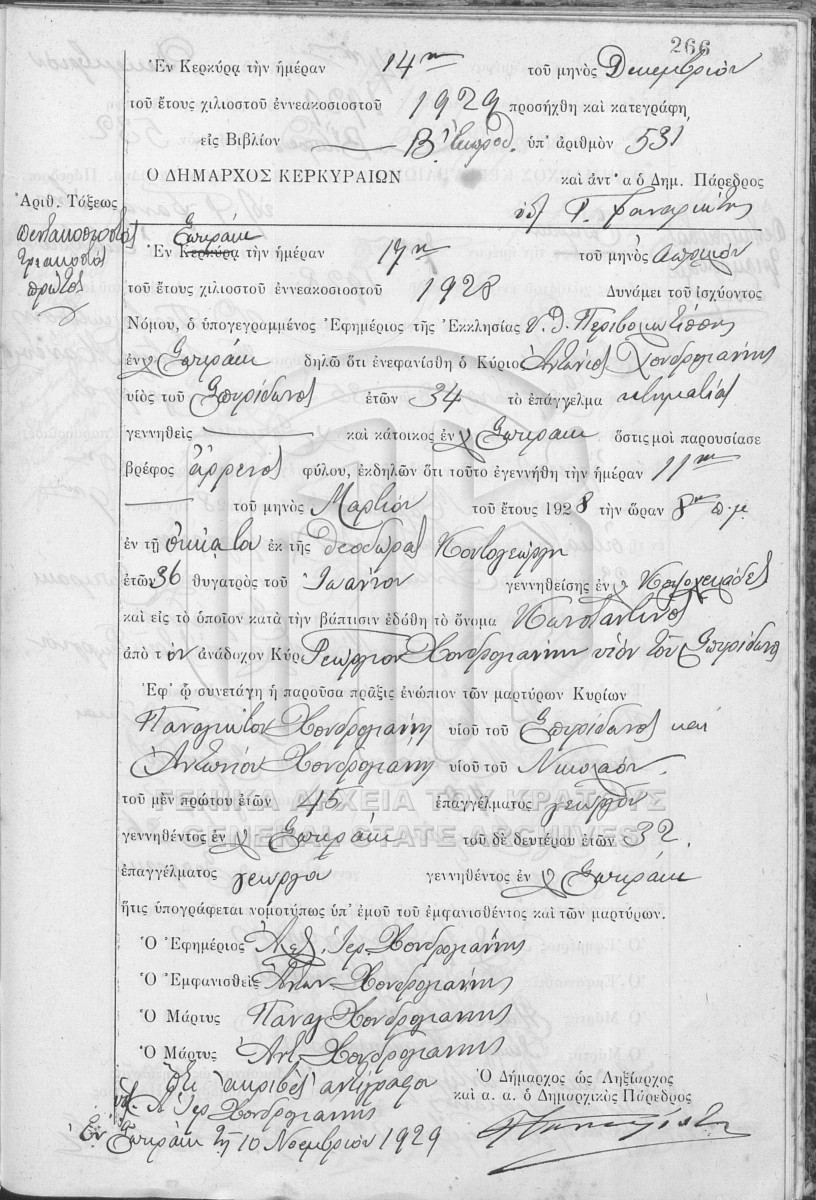 266
Ἐν Κερκύρᾳ τὴν ἡμέραν 14ην τοῦ μηνὸς Δεκεμβρίου
τοῦ ἔτους χιλιοστοῦ ἐννεακοσιοστοῦ 1929 προσήχθη καὶ κατεγράφη
εἰς Βιβλίον Β. ὑπ' ἀριθμὸν 531
Ο ΔΗΜΑΡΧΟΣ ΚΕΡΚΥΡΑΙΩΝ καὶ ἀντ' α ὁ Δημ. Πάρεδρος
Ἀριθ. Τάξεως
πεντακοσιοστὸς
τριακοστὸς
πρῶτος
Σπιράκι
Ἐν Κερκύρᾳ τὴν ἡμέραν 17η τοῦ μηνὸς Ἀπριλίου
τοῦ ἔτους χιλιοστοῦ ἐννεακοσιοστοῦ 1928 Δυνάμει τοῦ ἰσχύοντος
Νόμου, ὁ ὑπογεγραμμένος Ἐφημέριος τῆς Ἐκκλησίας Υ. Θ. Περιβολιωτίσσης
ἐν χ Σπιράκι δηλῶ ὅτι ἐνεφανίσθη ὁ Κύριος Ἀντώνιος Χονδρογιάννης
υἱὸς τοῦ Σπυρίδωνος ἐτῶν 34 τὸ ἐπάγγελμα κτηματίας
γεννηθεὶς καὶ κάτοικος ἐν χ Σπιράκι ὅστις μοὶ παρουσίασε
βρέφος ἄρρενος φύλου, ἐκδηλῶν ὅτι τοῦτο ἐγεννήθη τὴν ἡμέραν 11ην
τοῦ μηνὸς Μαρτίου τοῦ ἔτους 1928 τὴν ὥραν 8ην π.μ.
ἐν τῇ οἰκίᾳ του ἐκ τῆς Θεοδώρας Κοντογεώργη
ἐτῶν 36 θυγατρὸς τοῦ Ἰωάννου γεννηθείσης ἐν χ
καὶ εἰς τὸ ὁποῖον κατὰ τὴν βάπτισιν ἐδόθη τὸ ὄνομα Κωνσταντῖνος
ἀπὸ τὸν ἀνάδοχον Κύρ Γεώργιον Χονδρογιάννη υἱὸν τοῦ Σπυρίδωνος
Ἐφ' ᾧ συνετάγη ἡ παροῦσα πρᾶξις ἐνώπιον τῶν μαρτύρων Κυρίων
Παναγιώτου Χονδρογιάννη υἱοῦ τοῦ Σπυρίδωνος καὶ
Ἀντωνίου Χονδρογιάννη υἱοῦ τοῦ Νικολάου.
τοῦ μὲν πρώτου ἐτῶν 45 ἐπαγγέλματος γεωργοῦ
ΓΕΝΙΚΑ ΑΡΧΕΙΑ ΤΟΥ ΚΡΑΤΟΥΣ
GENERAL STATE ARCHIVES
γεννηθέντος ἐν χ Σπιράκι τοῦ δὲ δευτέρου ἐτῶν 32.
ἐπαγγέλματος γεωργοῦ γεννηθέντος ἐν χ Σπιράκι
ἥτις ὑπογράφεται νομοτύπως ὑπ' ἐμοῦ τοῦ ἐμφανισθέντος καὶ τῶν μαρτύρων.
Ὁ Ἐφημέριος Ἀλεξ. Ἱερ. Χονδρογιάννης
Ὁ Ἐμφανισθεὶς Ἀντων. Χονδρογιάννης
Ὁ Μάρτυς Παναγ. Χονδρογιάννης
Ὁ Μάρτυς Ἀντ. Χονδρογιάννης
Ὅτι ἀκριβὲς ἀντίγραφον
Ὁ Δήμαρχος ὡς Ληξίαρχος
καὶ α. α. ὁ Δημαρχικὸς Πάρεδρος
Α Ἱερ. Χονδρογιάννης
Ἐν Σπιράκι τῇ 10 Νοεμβρίου 1929